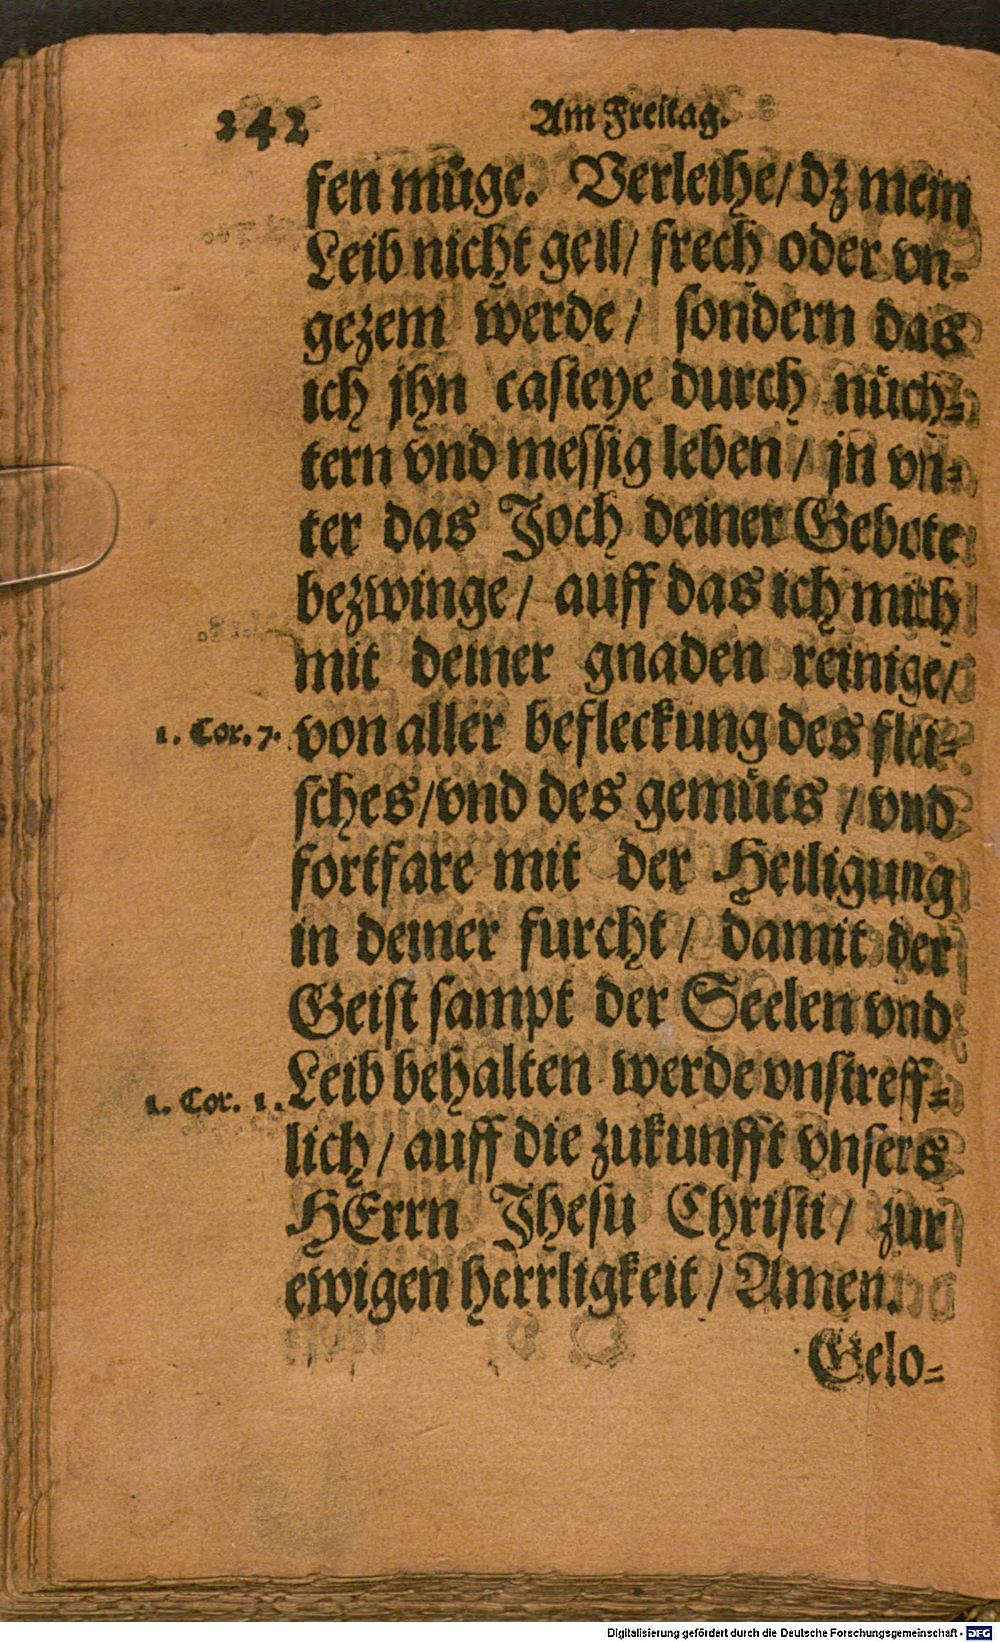 242 Am Freitag.
fen müge. Verleihe/ dz mein
Leib nicht geil/ frech oder vn-
gezem werde/ sondern das
ich jhn casteye durch nüch-
tern vnd messig leben/ jn vn-
ter das Joch deiner Gebote
bezwinge/ auff das ich mich
mit deiner gnaden reinige/
1. Cor. 7. von aller befleckung des flei-
sches/ vnd des gemüts / vnd
fortfare mit der Heiligung
in deiner furcht/ damit der
Geist sampt der Seelen vnd
1. Cor. 1. Leib behalten werde vnstreff-
lich/ auff die zukunfft vnsers
HErrn Jhesu Christi/ zur
ewigen herrligkeit/ Amen.
Gelo-
Digitalisierung gefördert durch die Deutsche Forschungsgemeinschaft - DFG